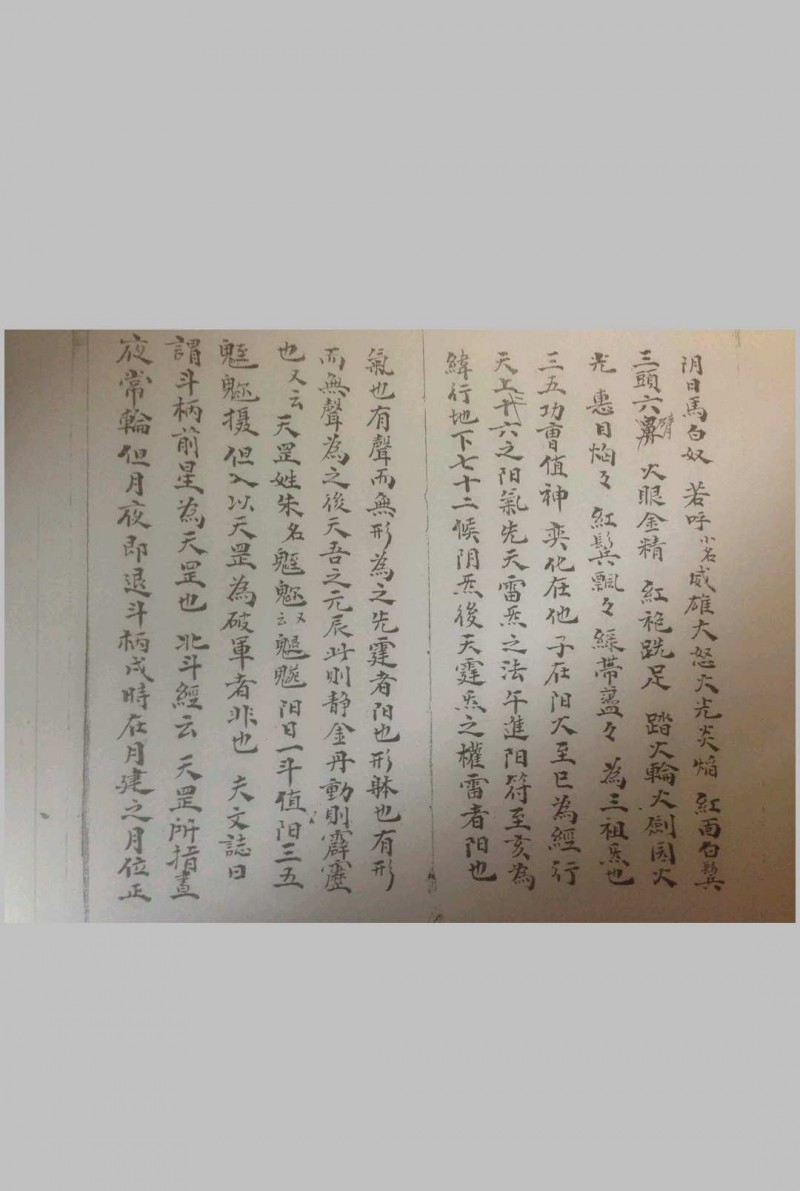 阴日馬白奴 若呼小名威雄大怒火光炎焰 紅面白鬓
三頭六臂 火眼金精 紅袍跣足 踏火輪火劍圍火
光 惠目焰々 紅鬓飄々 綠带 々 為三祖炁也
三五功曺值神奕化在他 子在阳火至巳為經行
天上三十六之阳氣先天雷炁之法午進阳符至亥為
緯行地下七十二候阴炁後天霆炁之權雷者阳也
氣也有聲而無形為之先霆者阳也形躰也有形
而無聲為之後天吾之元辰此則静金丹動則霹靂
也又云天罡姓朱名 又云 阳日一斗值阳三五
 攝但入以天罡為破軍者非也 天文誌曰
謂斗柄前星為天罡也 北斗經云 天罡所指晝
夜常輪但月夜即退斗柄戍時在月建之月位正